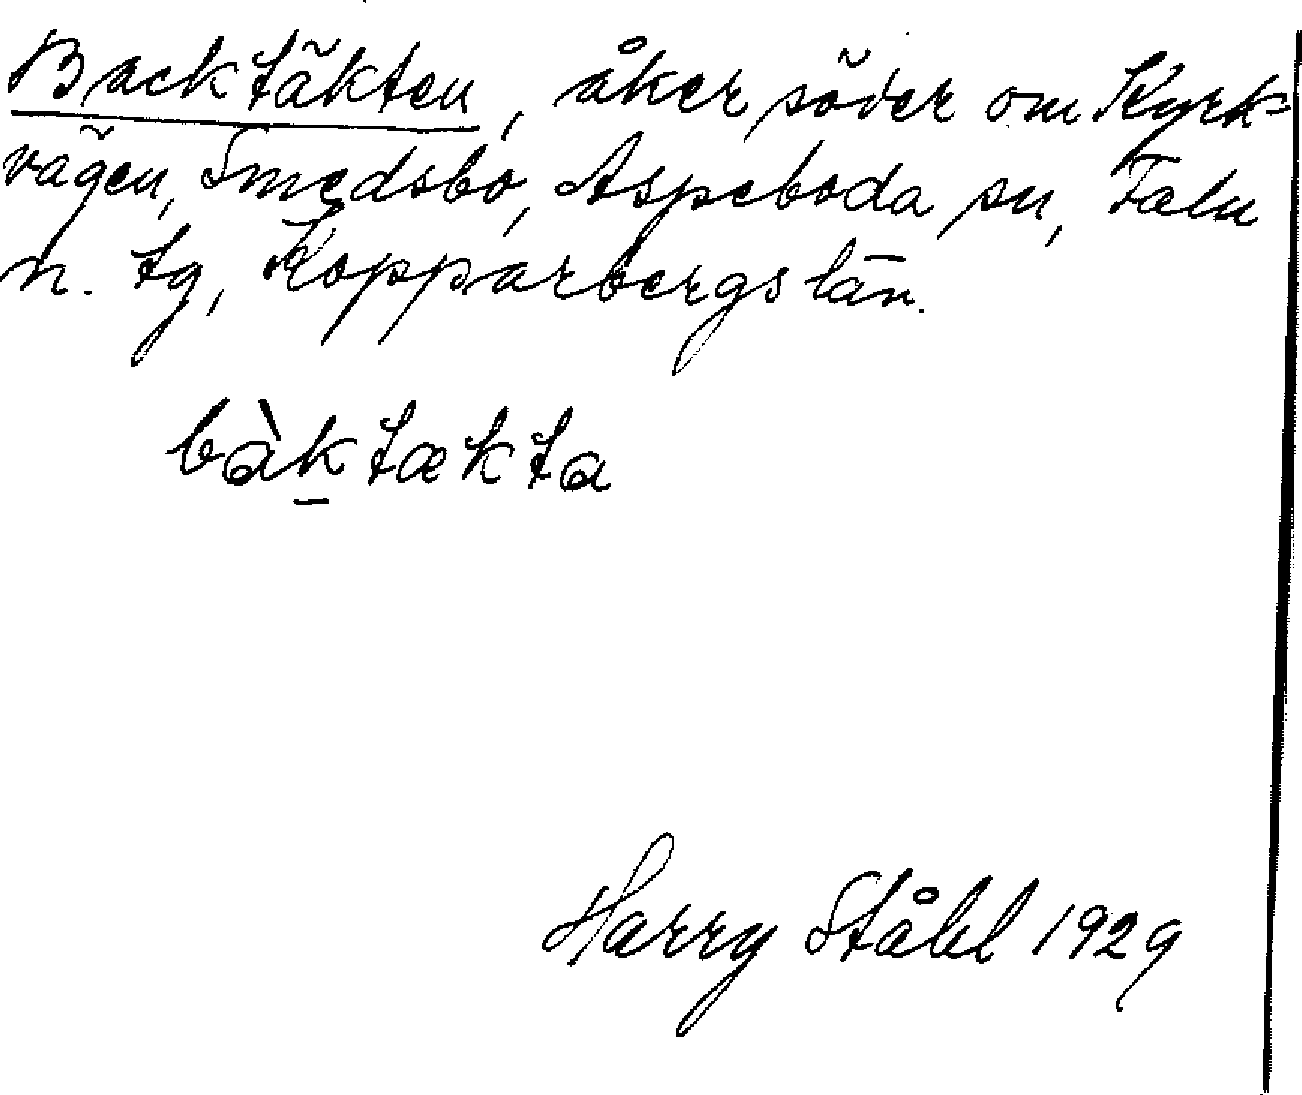 Backtäkten, åker söder om Kyrk-
vägen, Smedsbo, Aspeboda sn, Falu
n. tg, Kopparbergs län.
bàk̲tækta
Harry Ståhl 1929